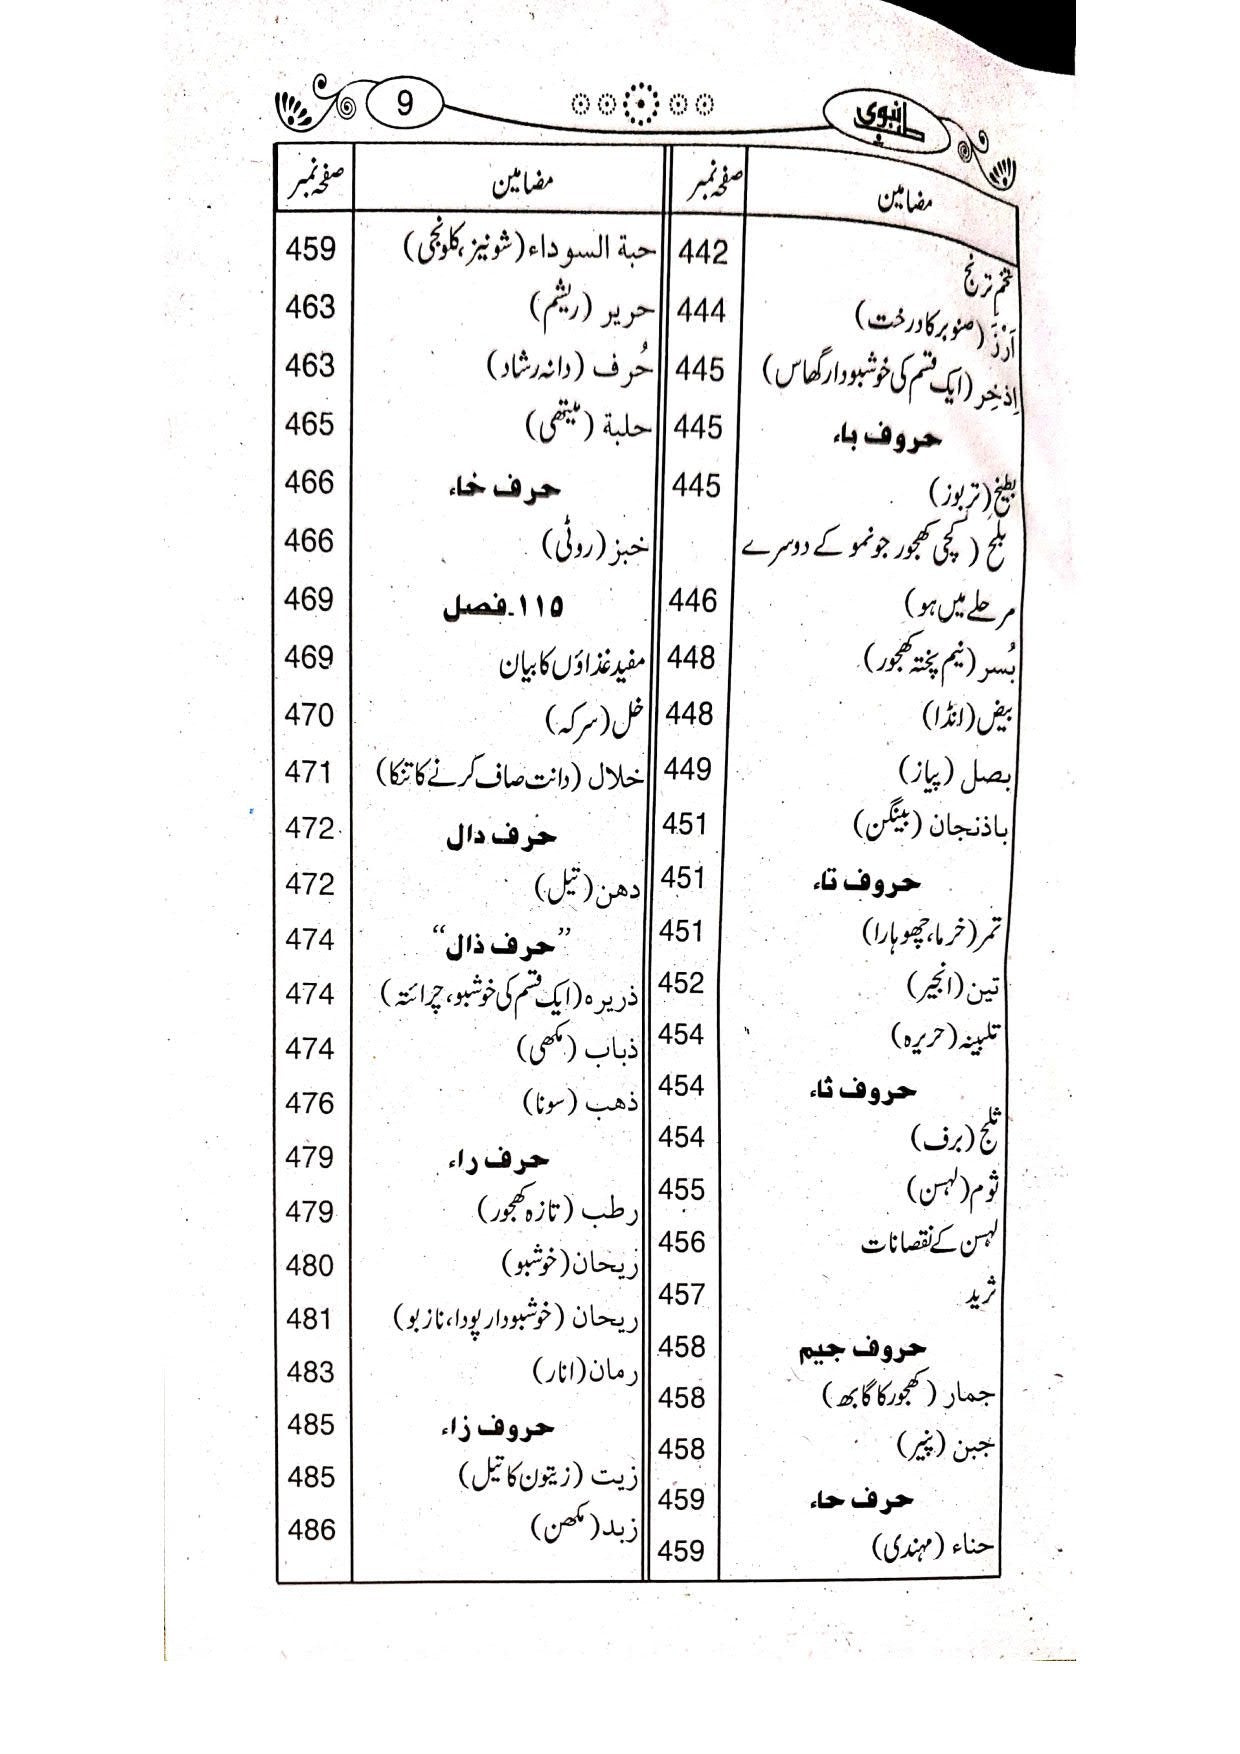 9
طب نبوی
مضامین صفحہ نمبر
تخم ترنج 442
اَرْزَ (صنوبر کا درخت) 444
اِذخِر (ایک قسم کی خوشبودار گھاس) 445
حروف باء 445
بطیخ (تربوز) 445
بلح (کچی کھجور جو نمو کے دوسرے
مرحلے میں ہو) 446
بُسر (نیم پختہ کھجور) 448
بیض (انڈا) 448
بصل (پیاز) 449
باذنجان (بینگن) 451
حروف تاء 451
تمر (خرما، چھوہارا) 451
تین (انجیر) 452
تلبینہ (حریرہ) 454
حروف ثاء 454
ثلج (برف) 454
ثوم (لہسن) 455
لہسن کے نقصانات 456
ثرید 457
حروف جیم 458
جمار (کھجور کا گابھ) 458
جبن (پنیر) 458
حرف حاء 459
حناء (مہندی) 459
مضامین صفحہ نمبر
حبة السوداء (شونیز، کلونجی) 459
حریر (ریشم) 463
حُرف (دانہ رشاد) 463
حلبة (میتھی) 465
حرف خاء 466
خبز (روٹی) 466
۱۱۵۔فصل 469
مفید غذاؤں کا بیان 469
خل (سرکہ) 470
خلال (دانت صاف کرنے کا تنکا) 471
حرف دال 472
دھن (تیل) 472
”حرف ذال“ 474
ذریرہ (ایک قسم کی خوشبو، چرائتہ) 474
ذباب (مکھی) 474
ذھب (سونا) 476
حرف راء 479
رطب (تازہ کھجور) 479
زیحان (خوشبو) 480
ریحان (خوشبودار پودا، نازبو) 481
رمان (انار) 483
حروف زاء 485
زیت (زیتون کا تیل) 485
زبد (مکھن) 486